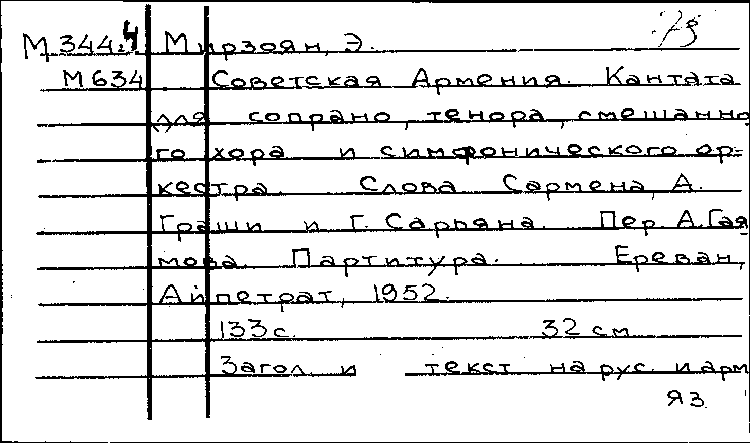 73
М344.4 Мирзоян, Э.
М634 Советская Армения. Кантата
для сопрано, тенора, смешанно
го хора и симфонического ор=
кестра. Слова Сармена, А.
Граши и Г. Сарьяна. Пер. А. Гая
мова. Партитура. Ереван,
Айпетрат, 1952.
133 с. 32 см
Загол. и текст на рус. и арм
яз.